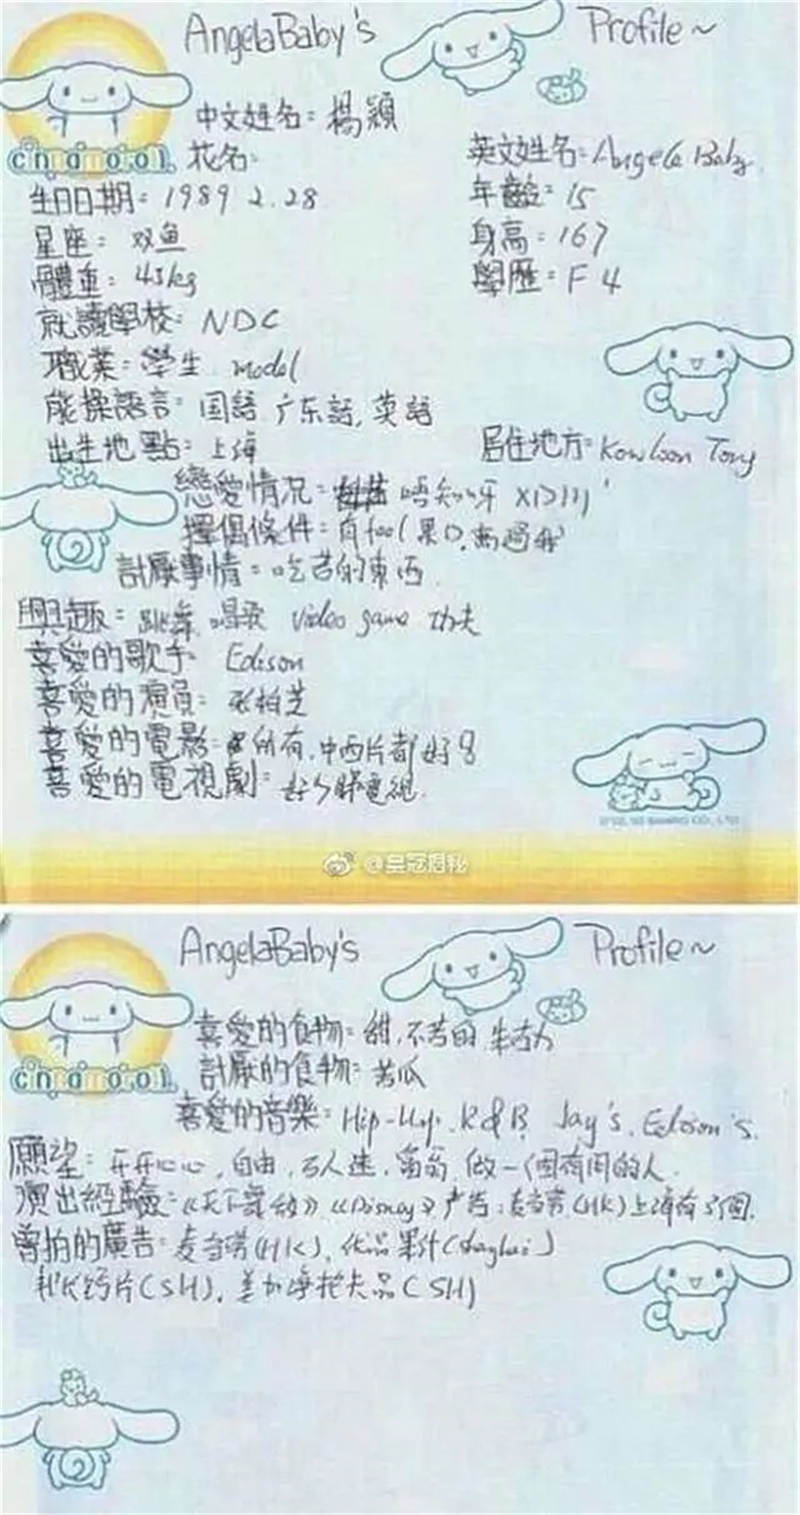 AngelaBaby's Profile~
中文姓名：楊穎
cinnamoroll 花名： 英文姓名：Angela Baby
生日日期：1989 2.28 年齡：15
星座：双鱼 身高：167
體重：43kg 學歷：F 4
就讀學校：NDC
職業：學生 model
能操語言：国語 广东話, 英語
出生地點：上海 居住地方：Kowloon Tong
戀愛情況：唔知呀
擇偶條件：有feel 果D, 高過我
討厭事情：吃苦的東西
興趣：跳舞 唱歌 video game 功夫
喜愛的歌手 Edison
喜愛的演員：张柏芝
喜愛的電影：所有, 中西片都好
喜愛的電視劇：好少睇電視
@皇冠揭秘
AngelaBaby's Profile~
喜愛的食物：甜, 不苦
cinnamoroll 討厭的食物：苦瓜
喜愛的音樂：Hip-Hop, R&B, Jay's, Edison's
願望：开开心心, 自由, 万人迷, 做一個有用的人
演出經驗：《天下無敌》《Disney》广告：麦当劳(HK)上海有
曾拍的廣告：麦当劳(HK), 果汁(Shanghai)
钙片(SH), (SH)